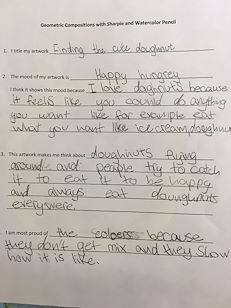 Geometric Compositions with Sharpie and Watercolor Pencil
1. I title my artwork Finding the cute doughnut
2. The mood of my artwork is Happy hungrey
I think it shows this mood because I love doghnuts because
it feels like you cound do anything
you want like for example eat
what you want like ice cream, doeghnuts
3. This artwork makes me think about doughnuts flying
around and people try to catch
it to eat it to be happy
and always eat doungnuts
everyswere.
I am most proud of the coloers because
they don't get mix and they show
how it is like.